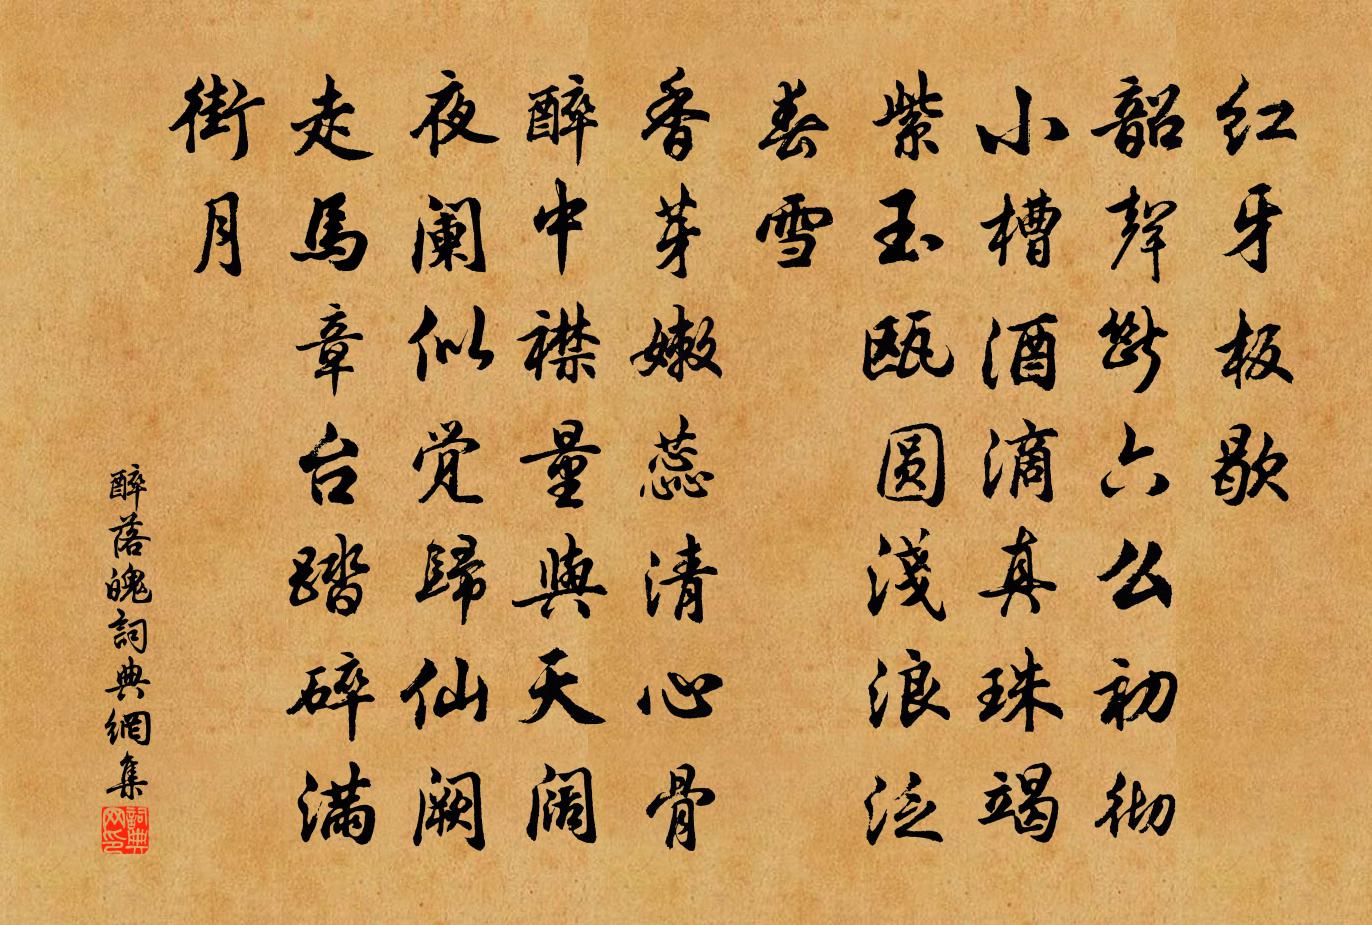 红牙板歇
韶聲斷六么初彻
小槽酒滴真珠竭
紫玉瓯圆淺浪泛
春雪
香芽嫩蕊清心骨
醉中襟量與天阔
夜阑似觉歸仙阙
走馬章台踏碎满
街月
醉落魄詞典網集
詞典
网印